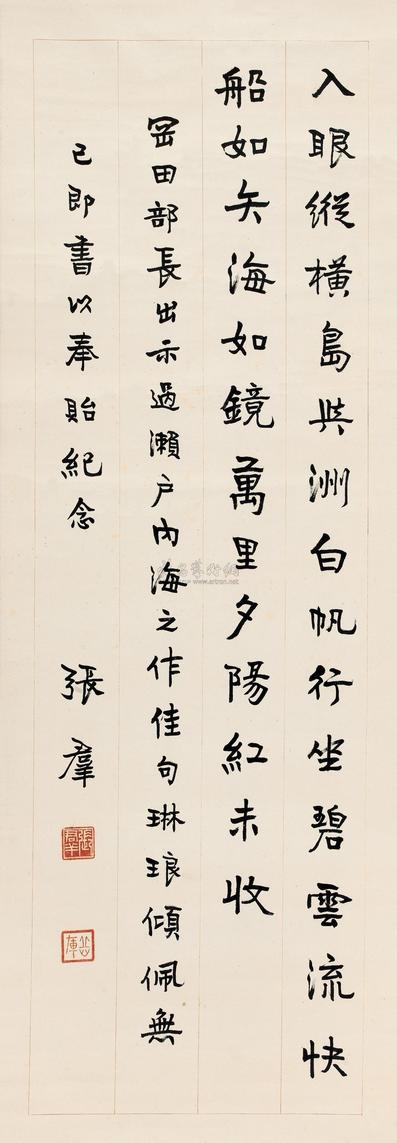 入眼縱橫島與洲白帆行坐碧雲流快
船如矢海如鏡萬里夕陽紅未收
岡田部長出示過瀨戶內海之作佳句琳琅傾佩無
已即書以奉貽紀念
張羣
張羣
www.artron.net